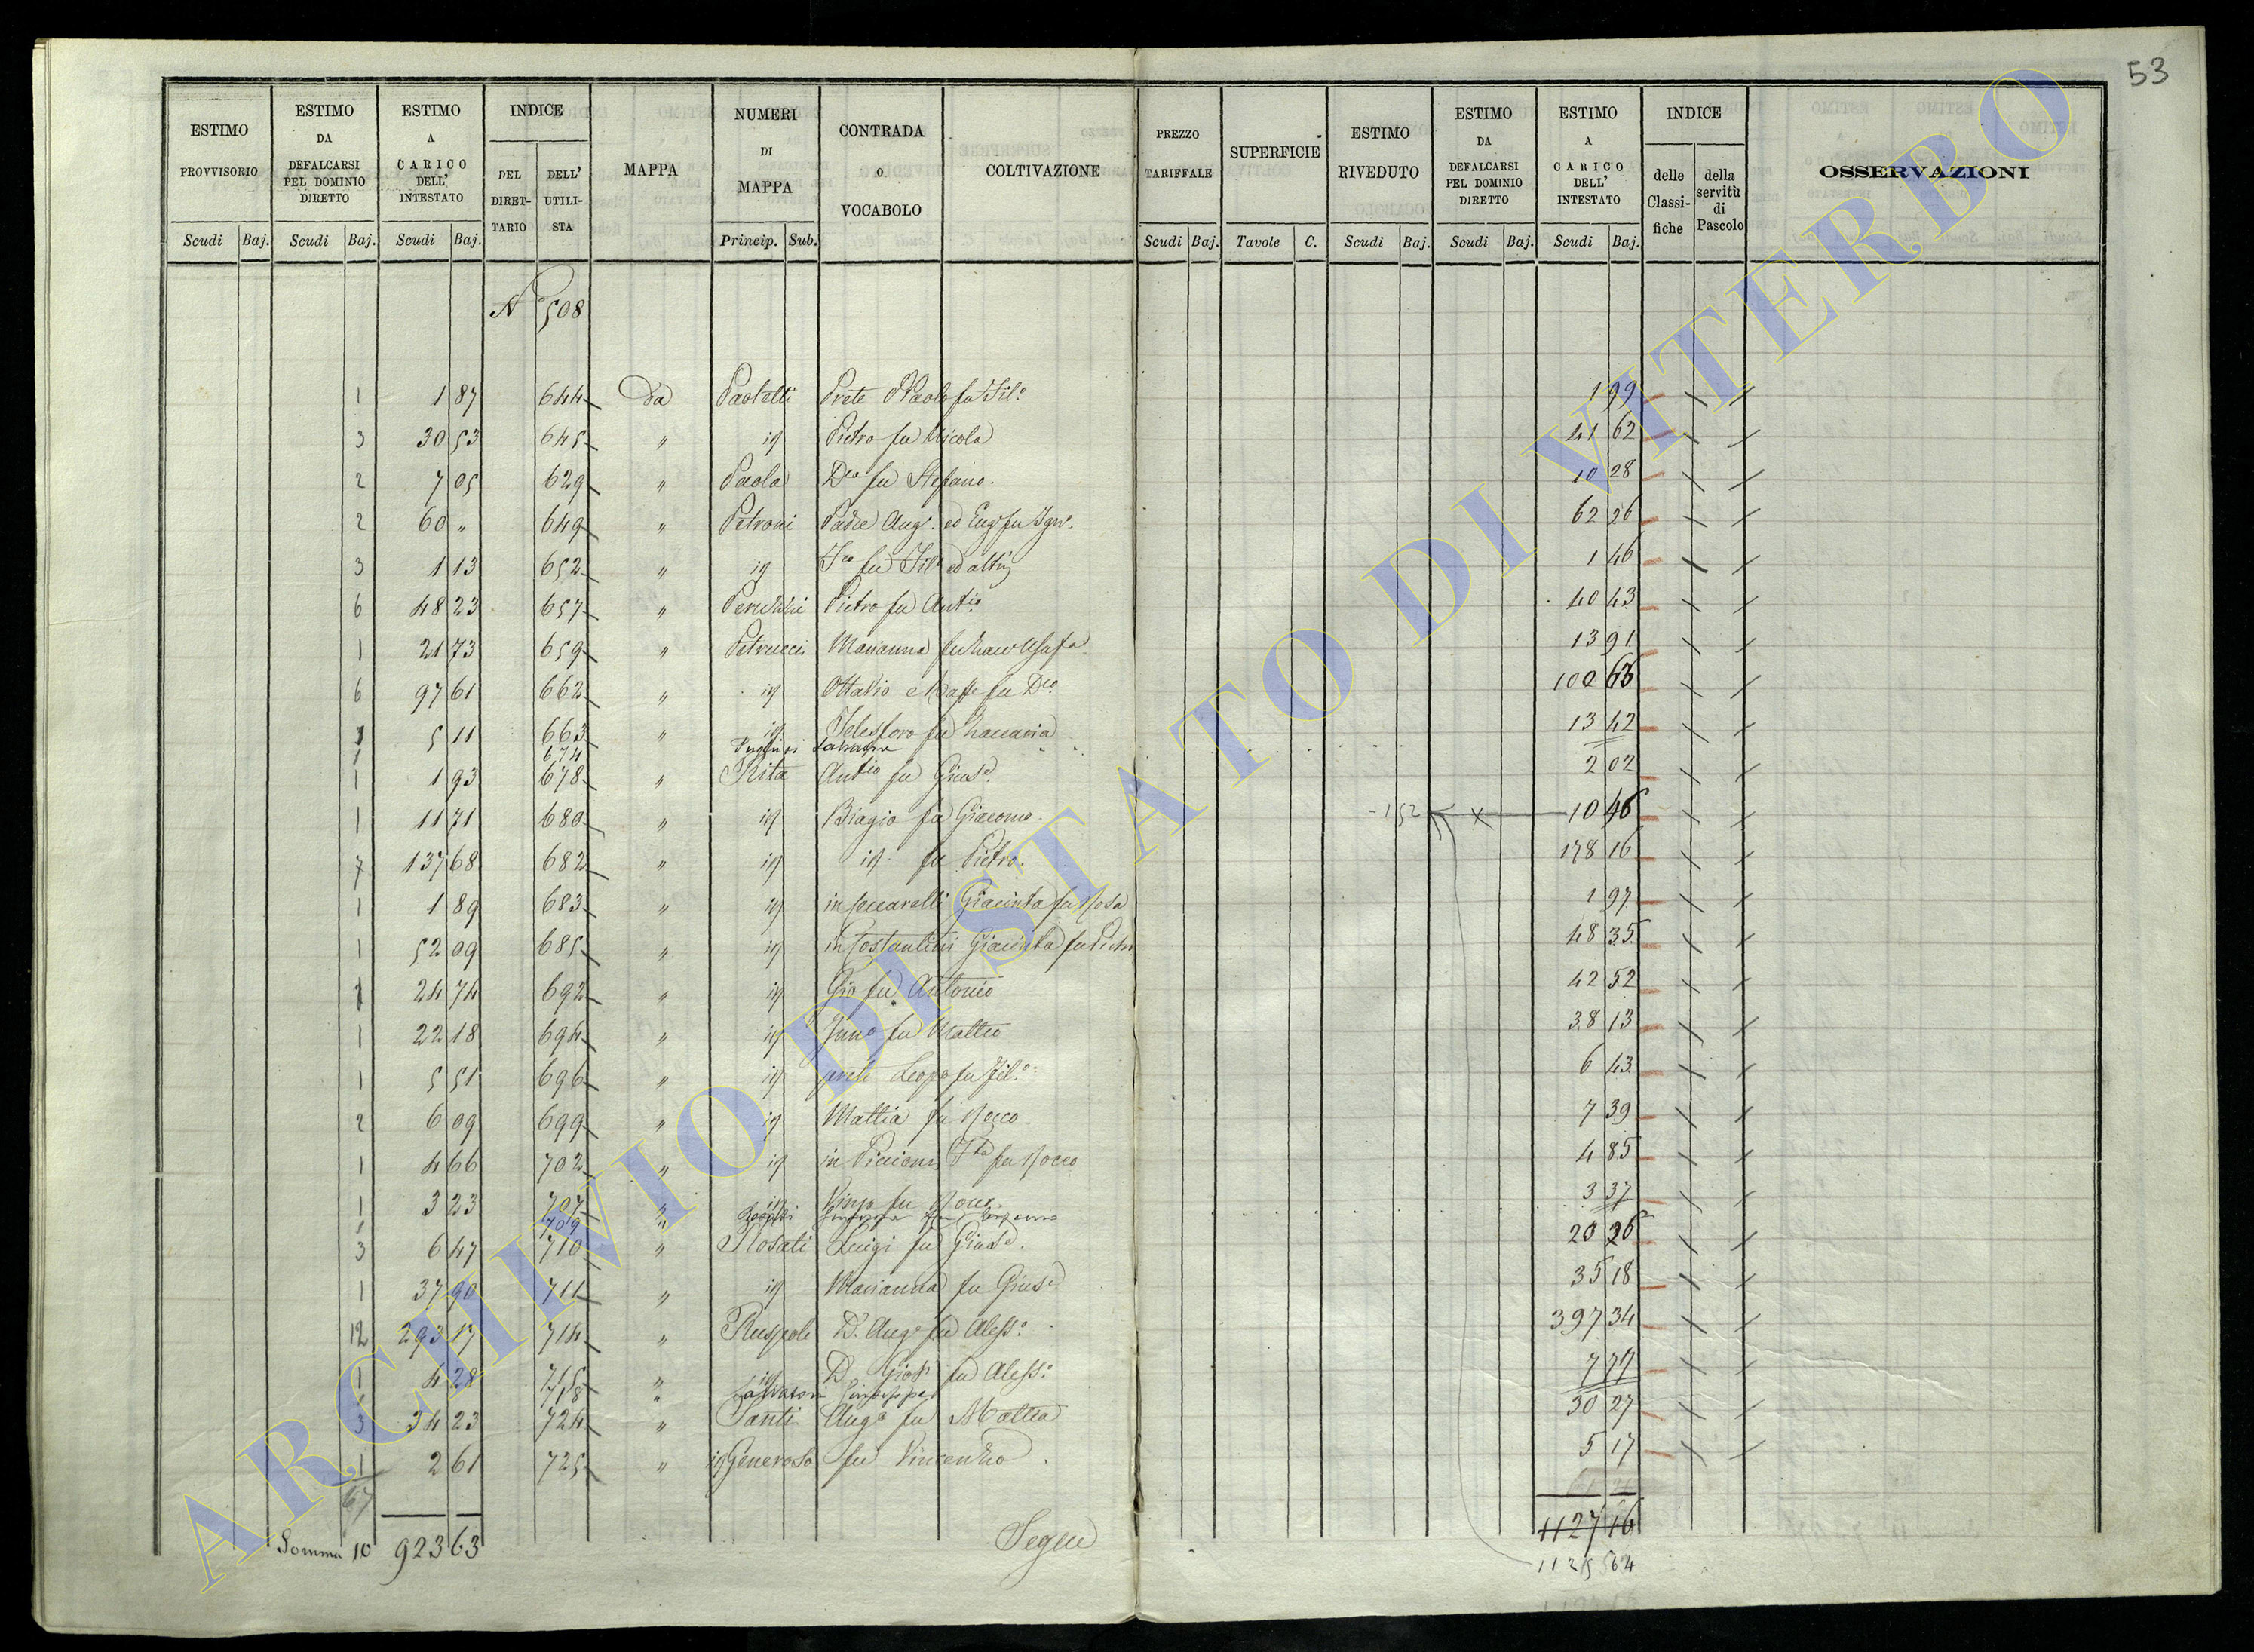 53
ESTIMO PROVVISORIO
ESTIMO DA DEFALCARSI PEL DOMINIO DIRETTO
ESTIMO A CARICO DELL' INTESTATO
INDICE
DEL DIRETTARIO
DELL' UTILISTA
MAPPA
NUMERI DI MAPPA
CONTRADA O VOCABOLO
COLTIVAZIONE
PREZZO TARIFFALE
SUPERFICIE
ESTIMO RIVEDUTO
ESTIMO DA DEFALCARSI PEL DOMINIO DIRETTO
ESTIMO A CARICO DELL' INTESTATO
INDICE
delle Classifiche
della servitù di Pascolo
OSSERVAZIONI
Scudi Baj. Scudi Baj. Scudi Baj. Princip. Sub. Scudi Baj. Tavole C. Scudi Baj. Scudi Baj. Scudi Baj.
N° 508
1 1 87 644 Da Paoletti Prete Paolo fu Fil.º 1 99
3 30 53 645 " id Pietro fu Nicola 41 62
2 7 05 629 " Paola Dco fu Stefano. 10 28
2 60 " 649 " Petroni Padre Aug. ed Eug fu Igno. 62 26
3 1 13 652 " id Fco fu Fil ed altri 1 46
6 48 23 657 " Pietro fu Antio 40 43
1 21 73 659 " Petrucci Marianna fu 13 91
6 97 61 662 " id Ottavio e fu Dco 100 63
1 5 11 663 " id Telesforo fu Zaccaria 13 42
1 674
1 1 93 678 " Rita Antio fu Giuse. 2 02
1 11 71 680 " id Biagio fu Giacomo. - 1 52 × 10 46
7 137 68 682 " id id fu Pietro. 178 16
1 1 89 683 " id in Ceccarelli Giacinta fu Rosa 1 97
1 52 09 685 " id in Costantini Giacinta fu Pietro 48 35
1 24 74 692 " id Gio fu Antonio 42 52
1 22 18 694 " id fu Matteo 38 13
1 5 51 696 " id prete Leopo fu Fil.º 6 43
2 6 09 699 " id Mattia fu Rocco 7 39
1 4 66 702 " id in Piccioni fu Rocco 4 85
1 3 23 707 " id Vinzo fu Rocco 3 37
1 709 "
3 6 47 710 " Rosati Luigi fu Giuse. 20 26
1 37 90 711 " id Marianna fu Giuse 35 18
12 293 17 714 " Ruspoli D. Augo fu Aless.º 397 34
1 4 28 715 " id D. Gios fu Aless.º 7 77
1 718 " Salvatori Giuseppe
3 34 23 724 " Santi Augo fu Mattia 30 27
1 2 61 725 " id Generoso fu Vincenzo. 5 17
67
Somma 10 923 63 Segue 1127 16
1125 64